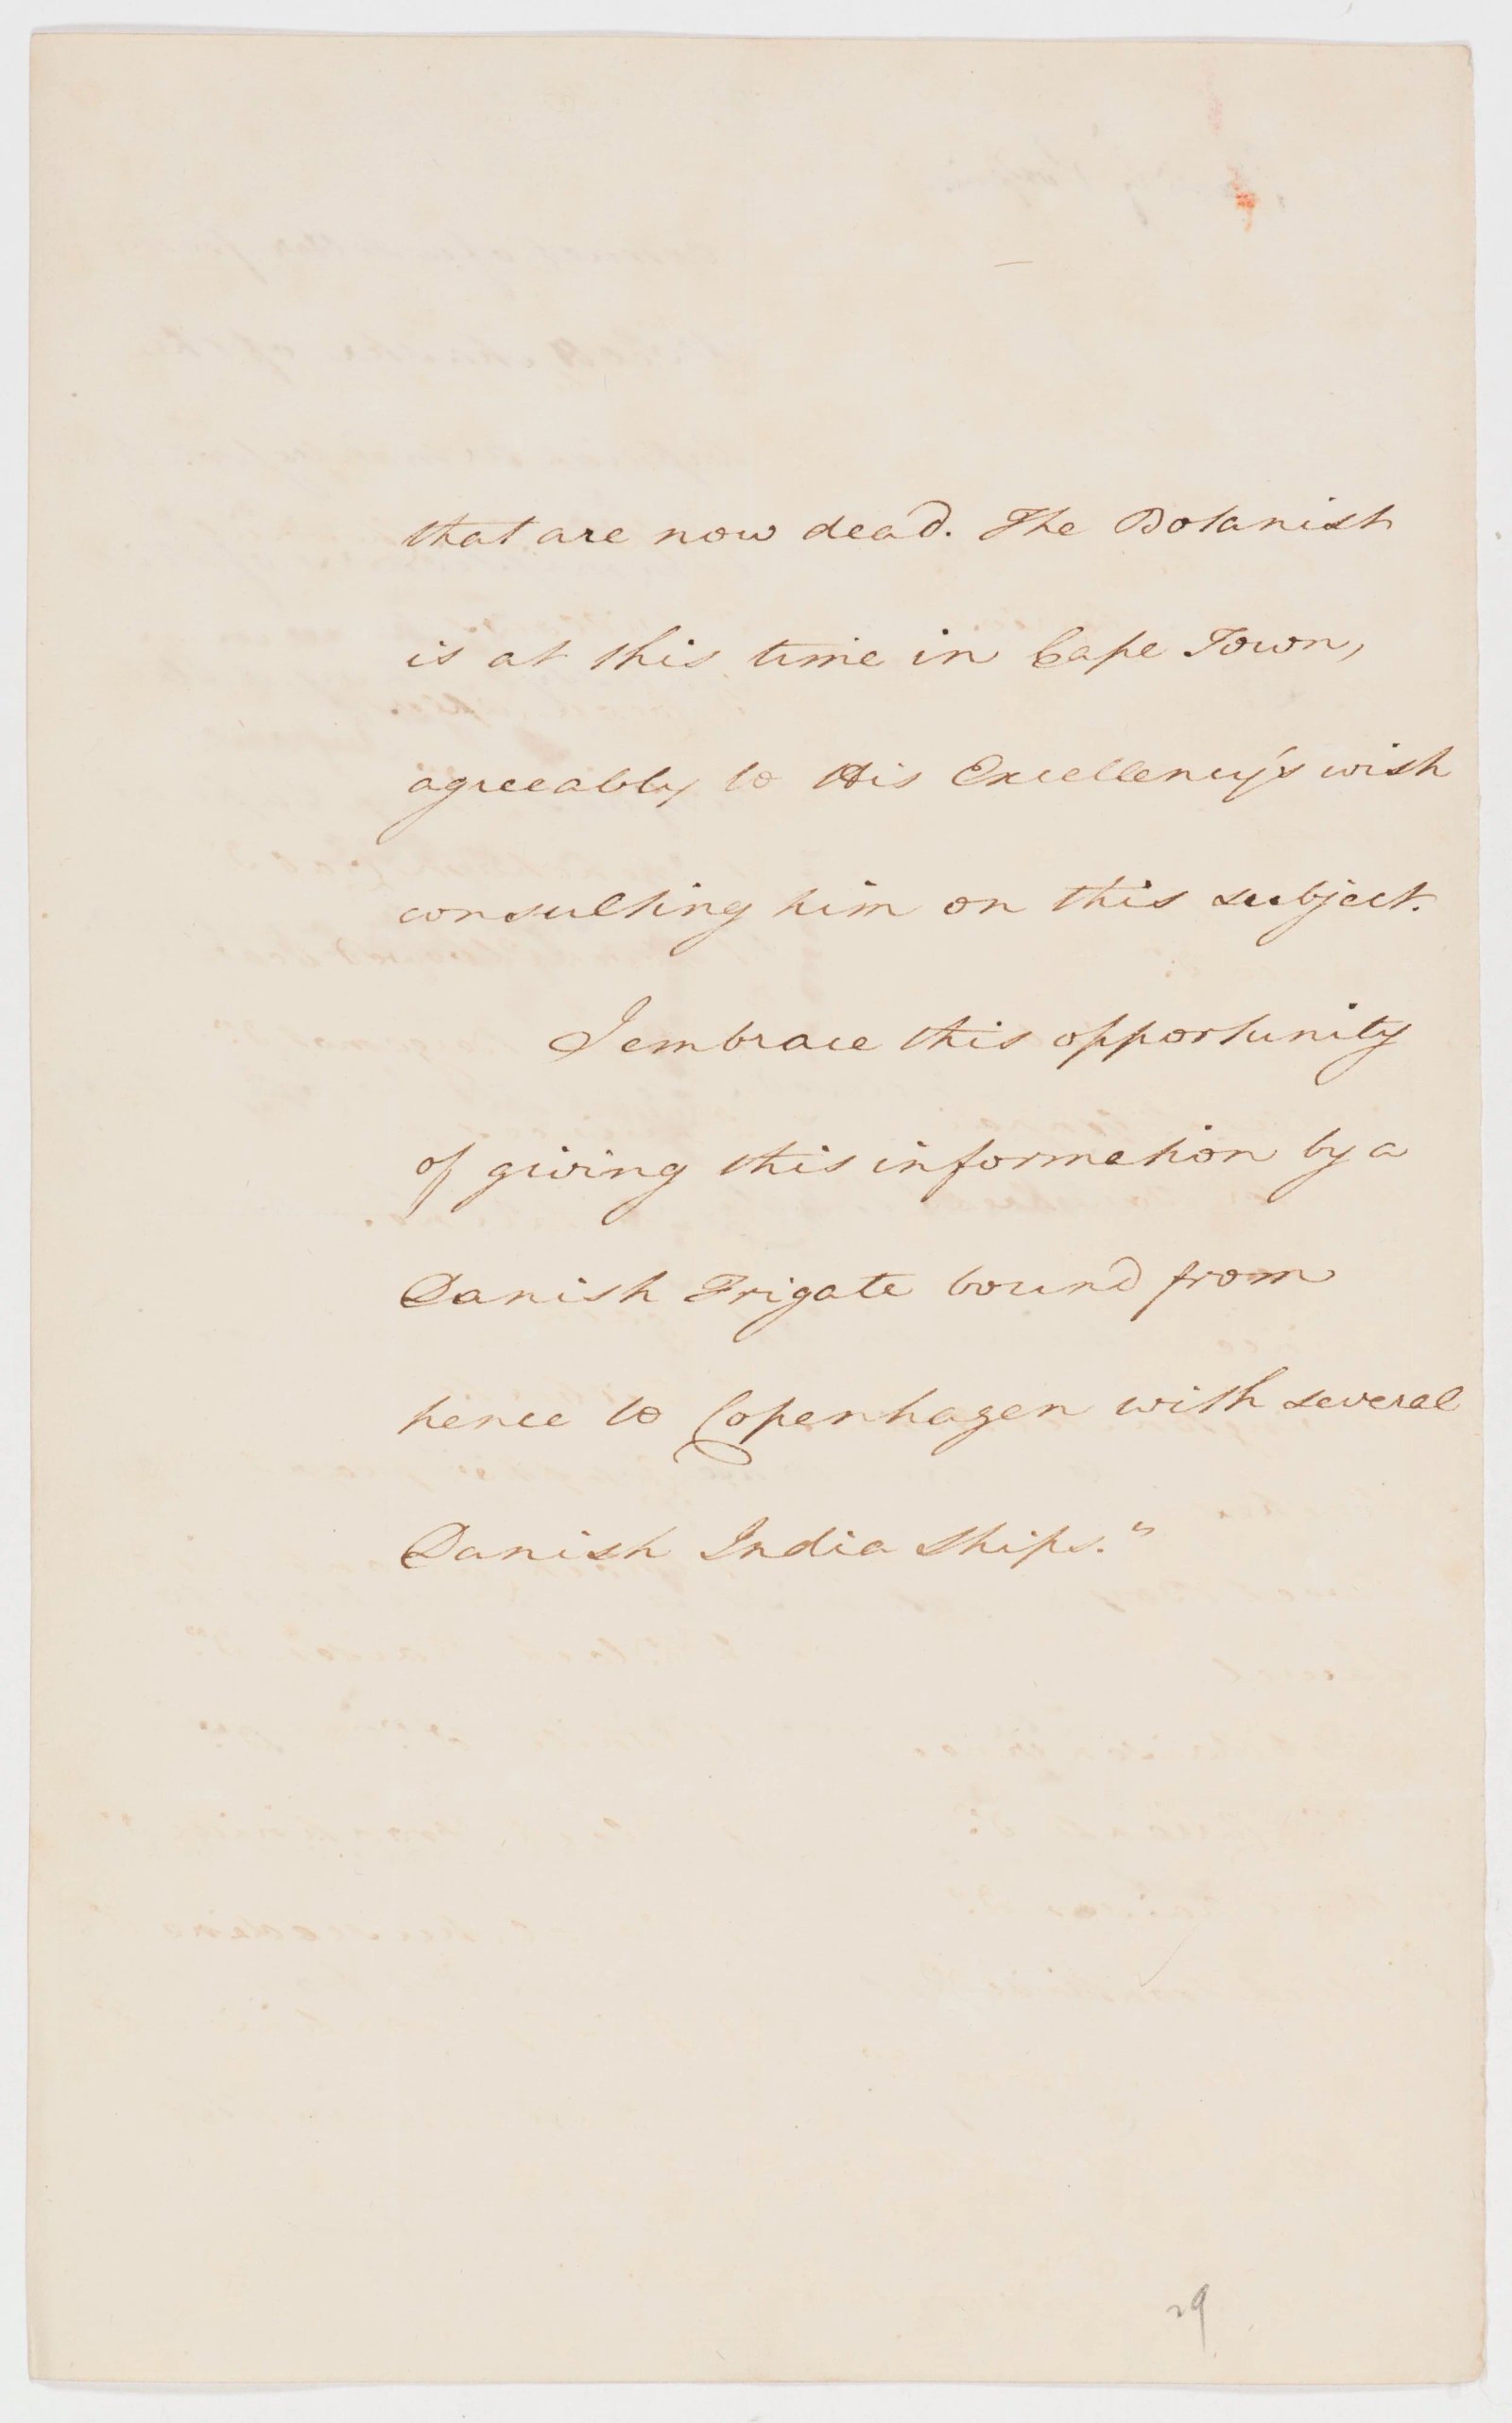 that are now dead. The Botanist
is at this time in Cape Town,
agreeably to His Excellency's wish
consulting him on this subject.
I embrace this opportunity
of giving this information by a
Danish Frigate bound from
hence to Copenhagen with several
Danish India Ships."
29